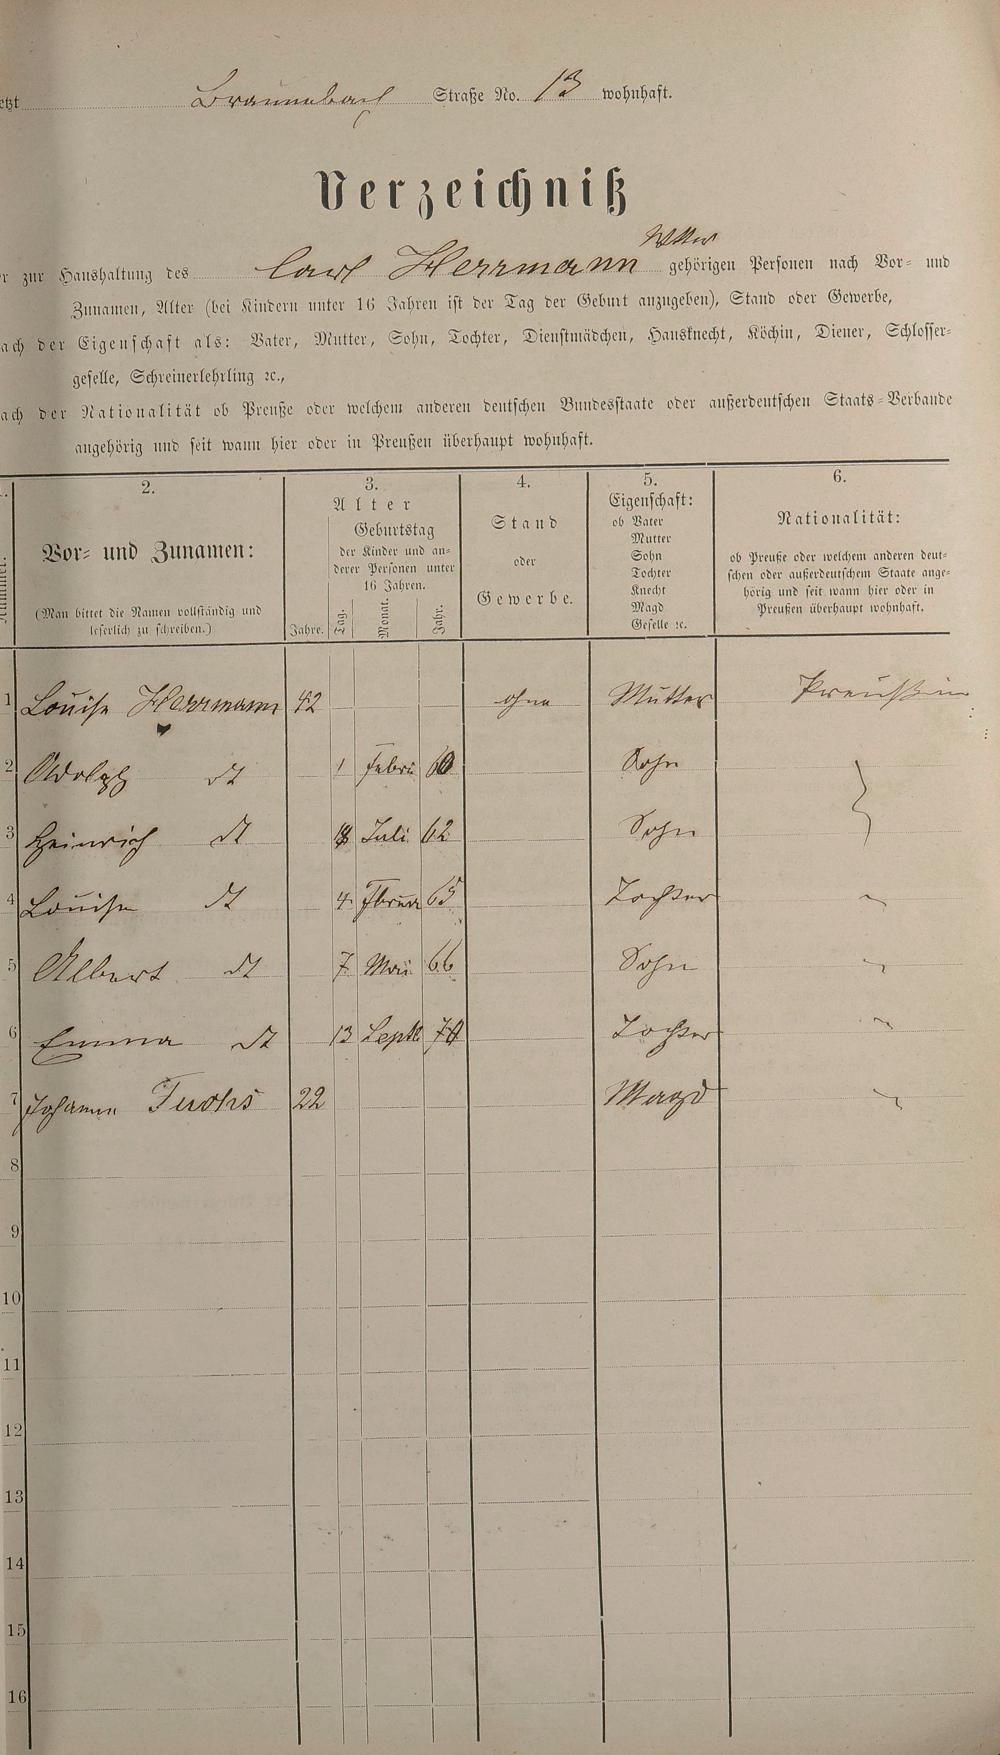 etzt Braunebach Straße No. 13 wohnhaft.
Verzeichniß
Wttw
r zur Haushaltung des Carl Herrmann gehörigen Personen nach Vor- und
Zunamen, Alter (bei Kindern unter 16 Jahren ist der Tag der Geburt anzugeben), Stand oder Gewerbe,
ach der Eigenschaft als: Vater, Mutter, Sohn, Tochter, Dienstmädchen, Hausknecht, Köchin, Diener, Schlosser-
geselle, Schreinerlehrling ꝛc.,
ach der Nationalität ob Preuße oder welchem anderen deutschen Bundesstaate oder außerdeutschen Staats-Verbande
angehörig und seit wann hier oder in Preußen überhaupt wohnhaft.
Nummer.
2.
Vor- und Zunamen:
(Man bittet die Namen vollständig und
leserlich zu schreiben.)
3.
Alter
Geburtstag
der Kinder und an-
derer Personen unter
16 Jahren.
Jahre. Tag. Monat. Jahr.
4.
Stand
oder
Gewerbe.
5.
Eigenschaft:
ob Vater
Mutter
Sohn
Tochter
Knecht
Magd
Geselle ꝛc.
6.
Nationalität:
ob Preuße oder welchem anderen deut-
schen oder außerdeutschem Staate ange-
hörig und seit wann hier oder in
Preußen überhaupt wohnhaft.
1 Louise Herrmann 42 ohne Mutter Preußin
2 Adolph dt 1 Febru 60 Sohn
3 Heinrich dt 18 Juli 62 Sohn
4 Louise dt 4 Februar 65 Tochter "
5 Albert dt 7 Mai 66 Sohn "
6 Emma dt 13 Septb 70 Tochter "
7 Johann Fuchs 22 Magd "
8
9
10
11
12
13
14
15
16